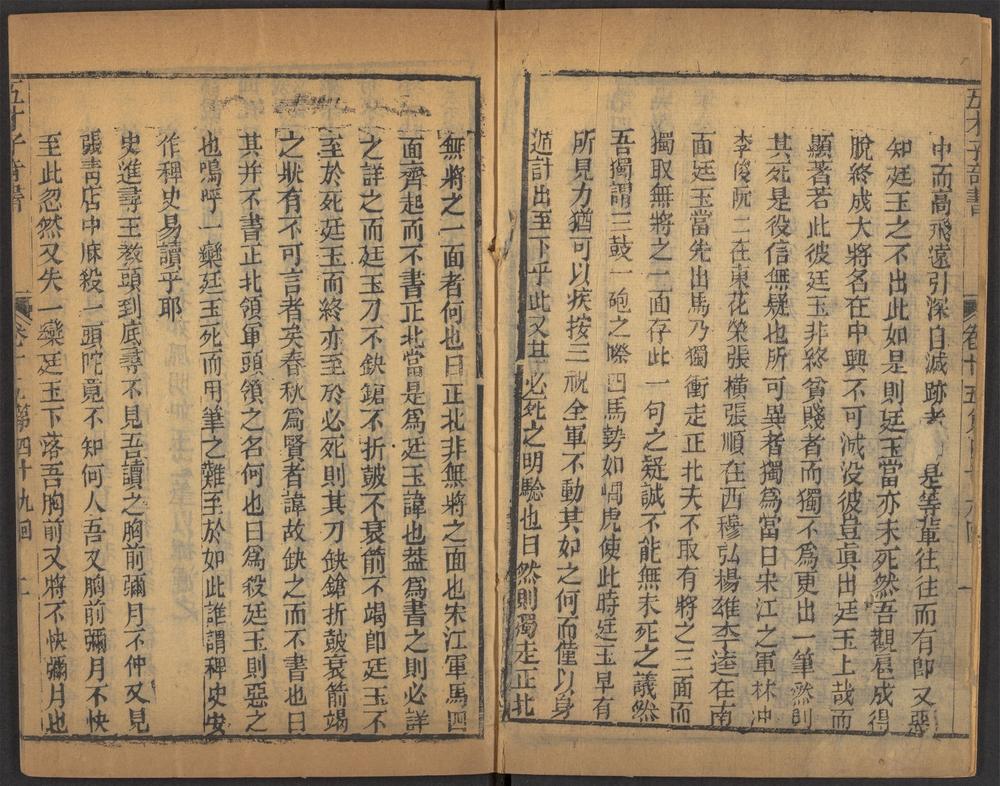 五才子奇書
卷十五
中而高飛遠引深自滅跡者 是等輩往往而有即又惡
知廷玉之不出此如是則廷玉當亦未死然吾觀扈成得
脫終成大將名在中興不可滅没彼豈眞出廷玉上哉而
顯著若此彼廷玉非終貧賤者而獨不爲更出一筆然則
其死是役信無疑也所可異者獨爲當日宋江之軍林冲
李俊阮二在東花榮張橫張順在西穆弘楊雄李逵在南
面廷玉當先出馬乃獨衝走正北夫不取有將之三面而
獨取無將之一面存此一句之疑誠不能無未死之議然
吾獨謂三鼓一砲之際四馬勢如嵎虎使此時廷玉早有
所見力猶可以疾按三祝全軍不動其如之何而僅以身
遁計出至下乎此又其必死之明驗也曰然則獨走正北
無將之一面者何也曰正北非無將之面也宋江軍馬四
面齊起而不書正北當是爲廷玉諱也葢爲書之則必詳
之詳之而廷玉刀不缺鎗不折鼓不衰箭不竭卽廷玉不
至於死廷玉而終亦至於必死則其刀缺鎗折鼓衰箭竭
之狀有不可言者矣春秋爲賢者諱故缺之而不書也曰
其并不書正北領軍頭領之名何也曰爲殺廷玉則惡之
也嗚呼一欒廷玉死而用筆之難至於如此誰謂稗史安
作稗史易讀乎耶
史進尋王教頭到底尋不見吾讀之胸前彌月不仲又見
張靑店中麻殺一頭陀竟不知何人吾又胸前彌月不快
至此忽然又失一欒廷玉下落吾胸前又將不快彌月也
五才子奇書
第四十九回
二